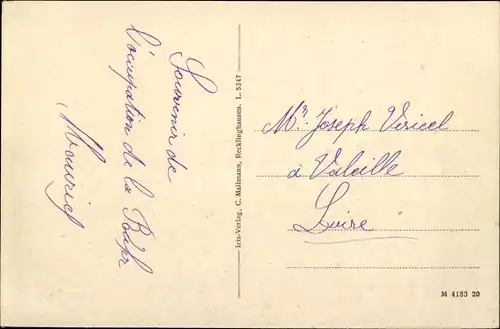 Souvenir de
l'ocupation de la Rhur
Mauricf
Iris-Verlag, C. Mallmann, Recklinghausen. L. 5347
Mr. Joseph Viricel
à Valeille
Loire
M 4180 20